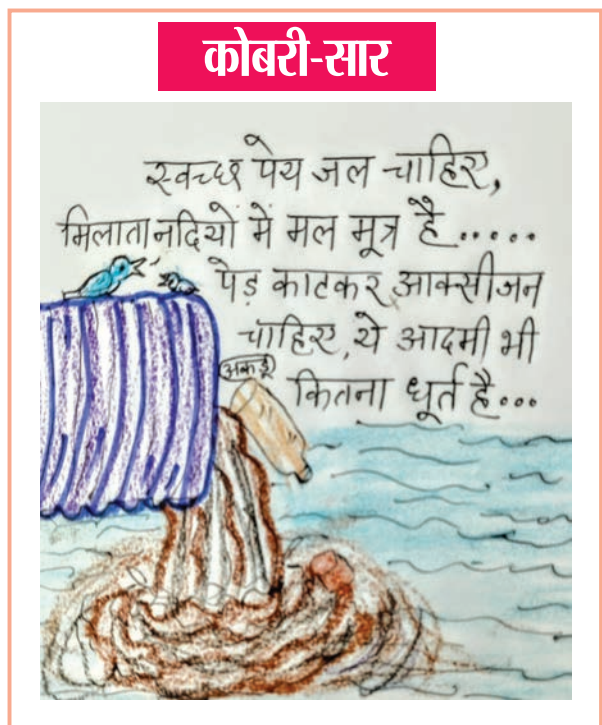 कोबरी-सार
स्वच्छ पेय जल चाहिए,
मिलाता नदियों में मल मूत्र है.....
पेड़ काटकर आक्सीजन
चाहिए, ये आदमी भी
अकडू
कितना धूर्त है...